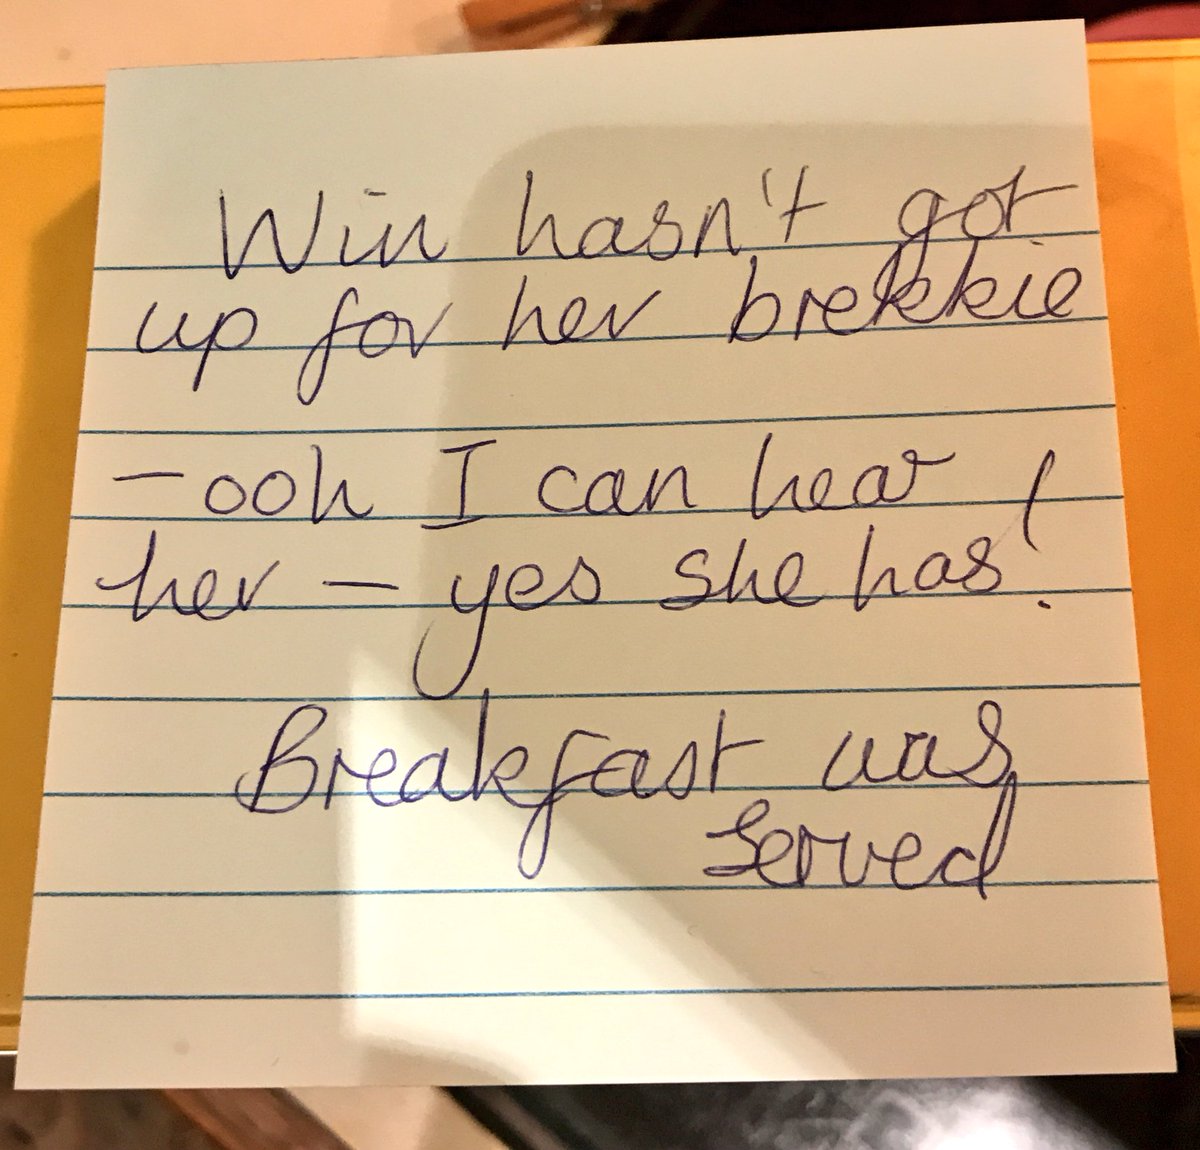 Win hasn't got
up for her brekkie
- ooh I can hear
her - yes she has!
Breakfast was
served